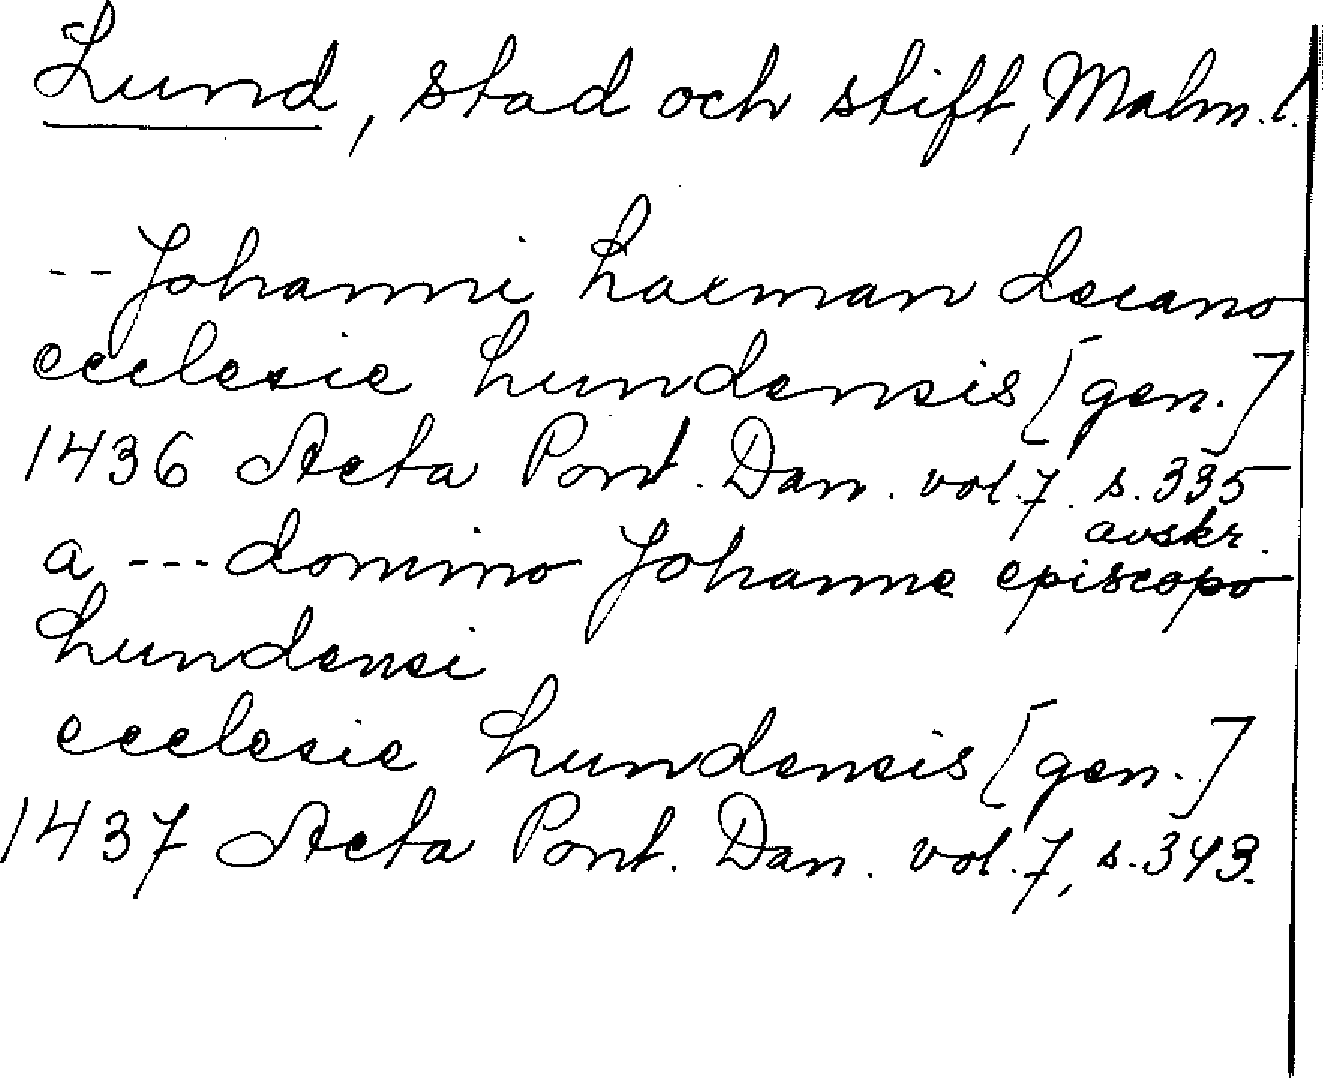 Lund, stad och stift, Malm. l.
-- Johanni Laxman decano
ecclesie Lundensis [gen.]
1436 Acta Pont. Dan. vol. 7. s. 335
avskr.
a --- domino Johanne episcopo
Lundensi
ecclesie Lundensis [gen.]
1437 Acta Pont. Dan. vol. 7, s. 343.